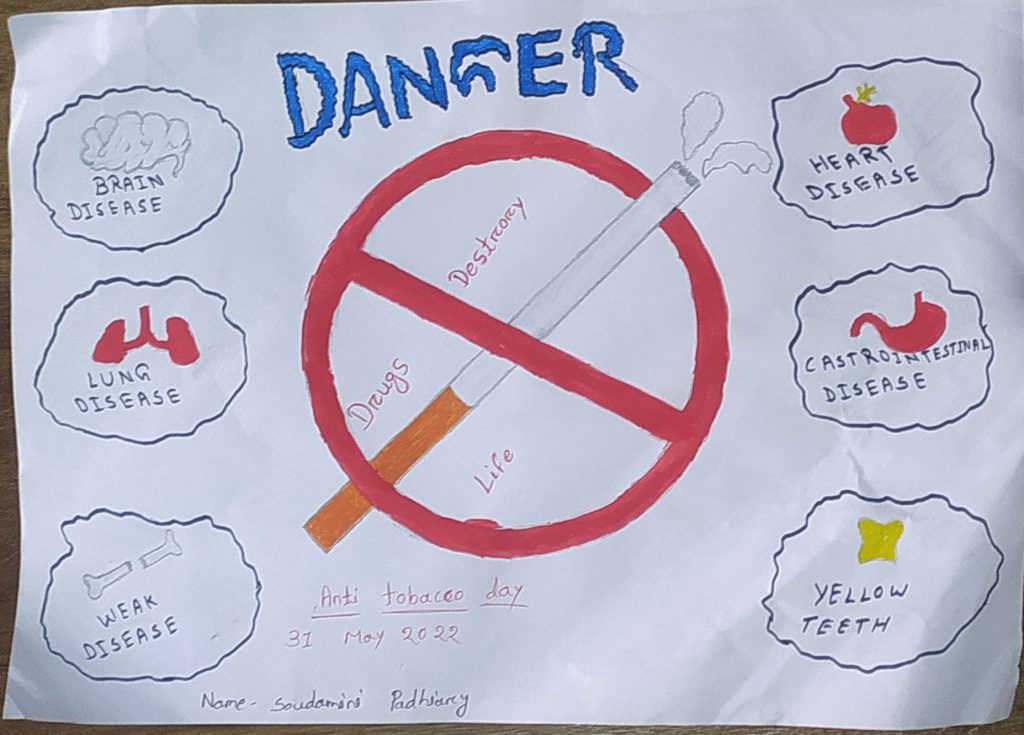 DANGER
BRAIN
DISEASE
HEART
DISEASE
Destrory
LUNG
DISEASE
CASTROINTESTINAL
DISEASE
Drugs
Life
WEAK
DISEASE
YELLOW
TEETH
Anti tobacoo day
31 May 2022
Name- Soudamini Padhiary